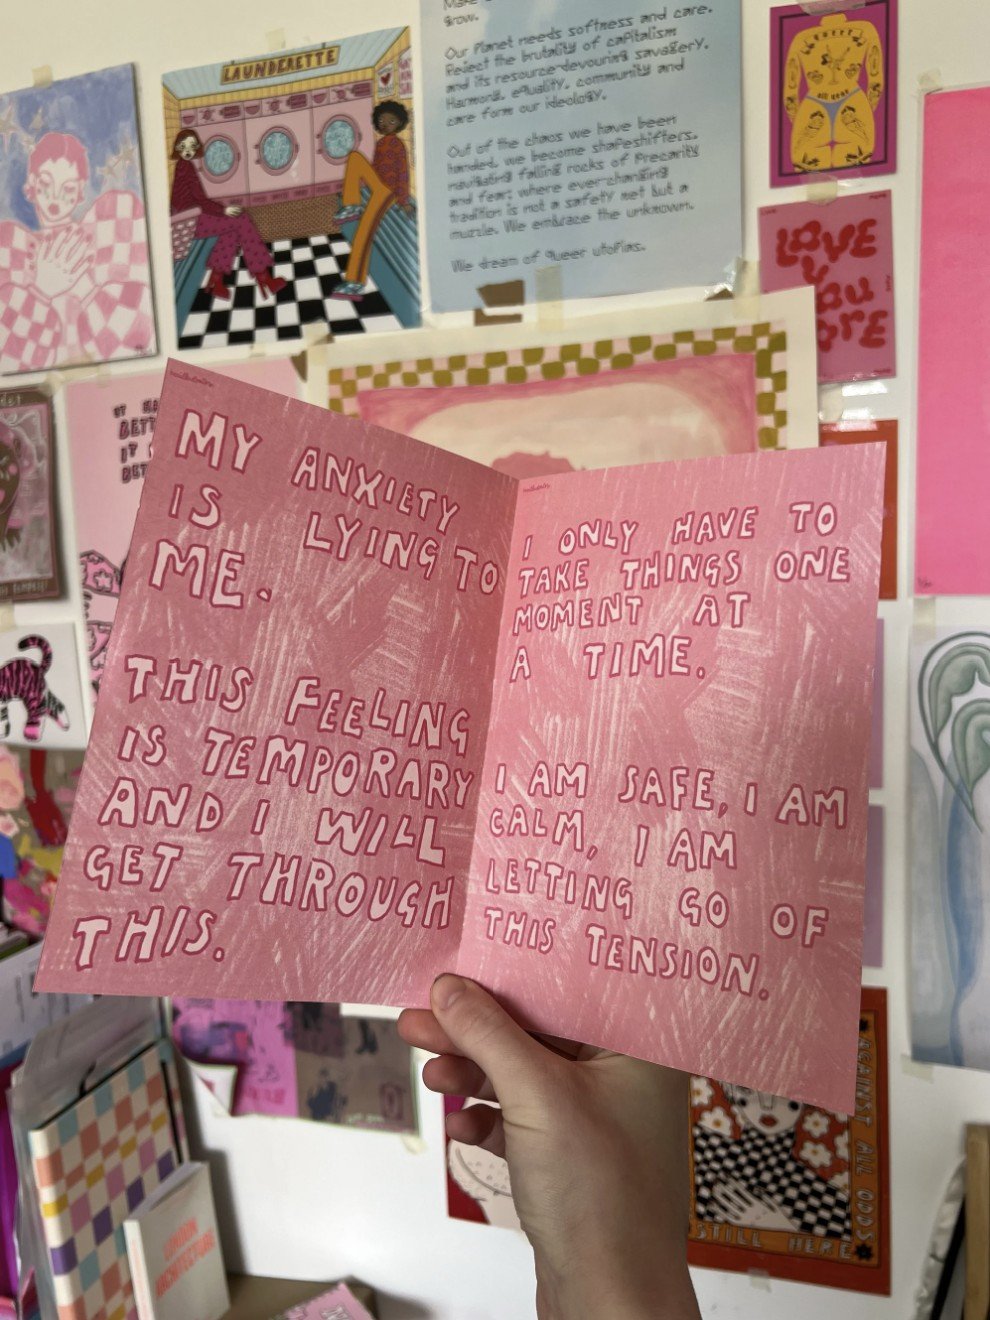 LAUNDERETTE
grow.
Our Planet needs softness and care.
Reject the brutality of capitalism
and its resource-devouring savagery.
Harmony, equality, community and
care form our ideology.
Out of the chaos we have been
handed, we become shapeshifters,
navigating falling rocks of precarity
and fear; where ever-changing
tradition is not a safety net but a
muzzle. We embrace the unknown.
We dream of queer utopias.
LOVE
YOU
MORE
MY ANXIETY
IS LYING TO
ME.
THIS FEELING
IS TEMPORARY
AND I WILL
GET THROUGH
THIS.
I ONLY HAVE TO
TAKE THINGS ONE
MOMENT AT
A TIME.
I AM SAFE, I AM
CALM, I AM
LETTING GO OF
THIS TENSION.
AGAINST ALL ODDS
STILL HERE
LONDON
ARCHITECTURE